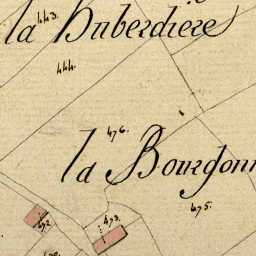 la Huberdiere
443.
444.
476.
la Bourgonn
475.
473.
472